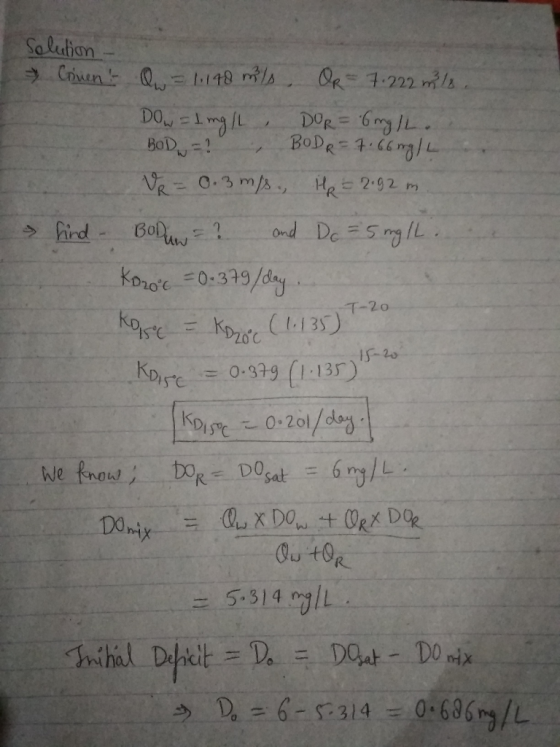 Solution -
⇒ Given :- Qw = 1.148 m³/s , QR = 7.222 m³/s .
DOw = 1 mg/L , DOR = 6 mg/L .
BODw = ? , BODR = 7.66 mg/L
VR = 0.3 m/s ., HR = 2.92 m
⇒ find - BODuw = ? and Dc = 5 mg/L .
KD20°C = 0.379/day .
KD15°C = KD20°C (1.135)^T-20
KD15°C = 0.379 (1.135)^15-20
KD15°C = 0.201/day .
We know ; DOR = DOsat = 6 mg/L .
DOmix = Qw X DOw + QR X DOR
Qw + QR
= 5.314 mg/L .
Initial Deficit = Do = DOsat - DOmix
⇒ Do = 6 - 5.314 = 0.686 mg/L